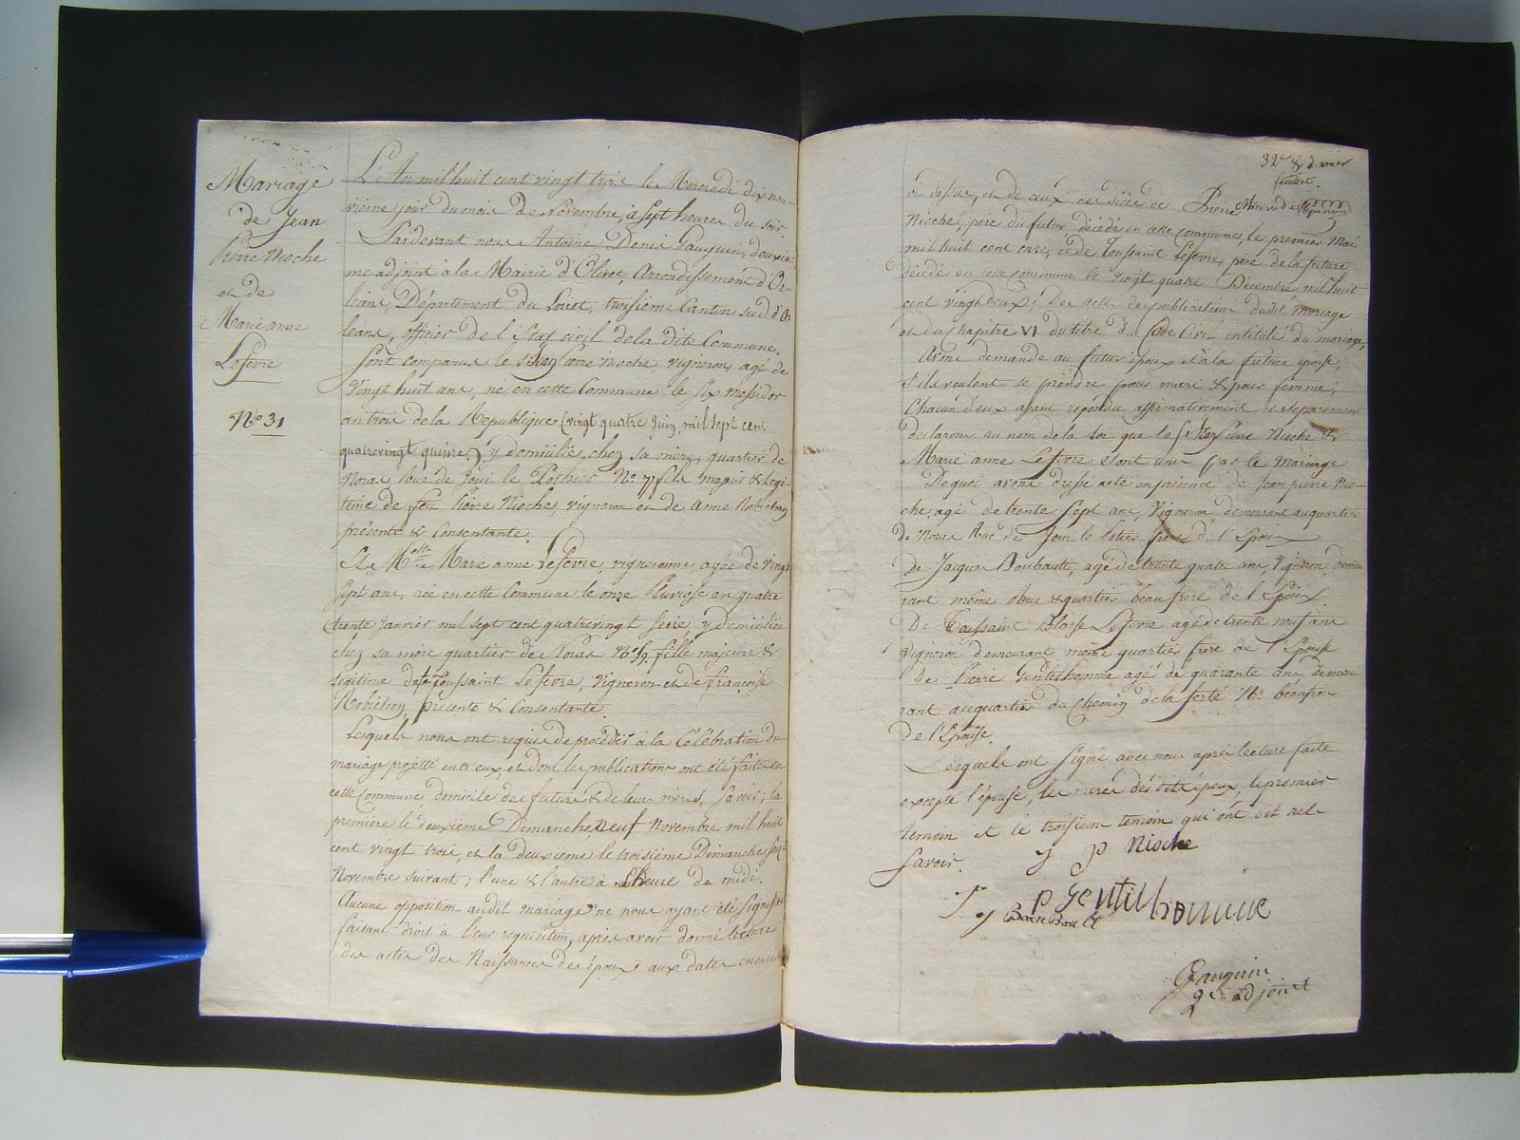 Mariage
de Jean
Pierre Nioche
et de
Marie anne
Lefevre
No 31
L'An mil huit cent vingt trois le Mercredi dix neu-
vieme jour du mois de Novembre, à sept heures du soir.
Pardevant nous Antoine Denis Pauguin, deuxie-
me adjoint à la Mairie d'Olivet, Arrondissement d'Or-
léans, Département du Loiret, troisième Canton sud d'Or
leans, officier de l'Etat civil de la dite Commune.
Sont comparus le Pierre Nioche, vigneron, agé de
Vingt huit ans, né en cette Commune le six messidor
an trois de la Republique (vingt quatre Juin mil sept cent
quatrevingt quinze,) y domicilié, chez sa mère, quartier de
Noras fils majeur & legi-
time de feu Pierre Nioche, vigneron et de Anne
présente & Consentante.
Et Melle Marie anne Lefevre, vigneronne, agée de vingt
sept ans, née en cette Commune le onze Pluviose an quatre
(trente Janvier mil sept cent quatrevingt seize, y domiciliée
chez sa mère quartier de Noras No 59. fille majeure &
legitime de feu Toussaint Lefevre, Vigneron et de françoise
présente & Consentante.
Lesquels nous ont requis de proceder à la Célébration du
mariage projetté entr'eux, et dont les publications ont été faites en
cette Commune, domicile des futurs & de leurs mères, Savoir; la
premiere le deuxieme Dimanche, neuf Novembre mil huit
cent vingt trois, et la deuxieme le troisième Dimanche, seize
Novembre suivant; l'une & l'autre à l'heure de midi.
Aucune opposition audit mariage ne nous ayant été signifiée
faisant droit à leur requisition, après avoir donné lecture
des actes de Naissances des époux aux dates
32e & dernier
feuillet.
ci dessus, et de ceux des décès de Pierre
Nioche, père du futur, décédé en cette commune, le premier Mai
mil huit cent onze, et de Toussaint Lefevre, père de la future
décédé en cette commune le vingt quatre Décembre mil huit
cent vingt deux; des actes de publications dudit mariage
et du chapitre VI du titre du Code Civil intitulé du mariage,
Avons demandé au futur époux et à la future épouse,
s'ils veulent se prendre pour mari & pour femme;
Chacun d'eux ayant répondu affirmativement & séparément
declarons au nom de la loi que le Pierre Nioche &
Marie anne Lefevre sont unis par le Mariage
De quoi avons dressé acte en présence de Jean pierre Nio-
che, agé de trente sept ans, Vigneron demeurant au quartier
de Noras frère de l'Epoux
de Jacques Boubault, agé de trente quatre ans, Vigneron demeu
rant même quartier beau frere de l'Epoux
De Toussaint Blaise Lefevre agé de trente neuf ans
vigneron demeurant même quartier frere de l'Epouse
De Pierre Gentilhomme agé de quarante ans demeu
rant au quartier du Chemin de la ferté No beaufre
re de l'Epouse.
Lesquels ont signé avec nous après lecture faite
excepté l'épouse, les mères desdits époux, le premier
temoin et le troisieme temoin qui ont dit ne
savoir.
J P Nioche
P Gentilhomme
J Boubault
Pauguin
2e adjoint